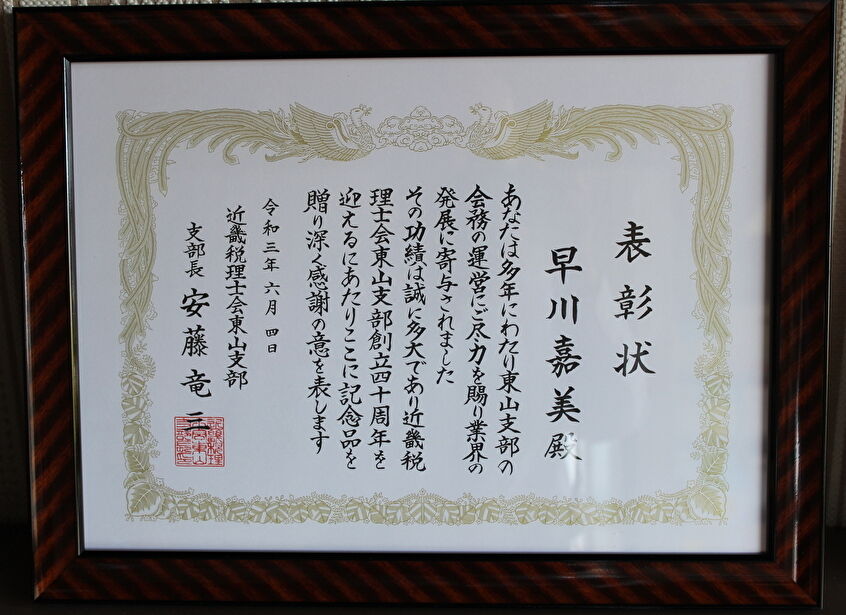 表彰状
早川嘉美殿
あなたは多年にわたり東山支部の
会務の運営にご尽力を賜り業界の
発展に寄与されました
その功績は誠に多大であり近畿税
理士会東山支部創立四十周年を
迎えるにあたりここに記念品を
贈り深く感謝の意を表します
令和三年六月四日
近畿税理士会東山支部
支部長 安藤竜三